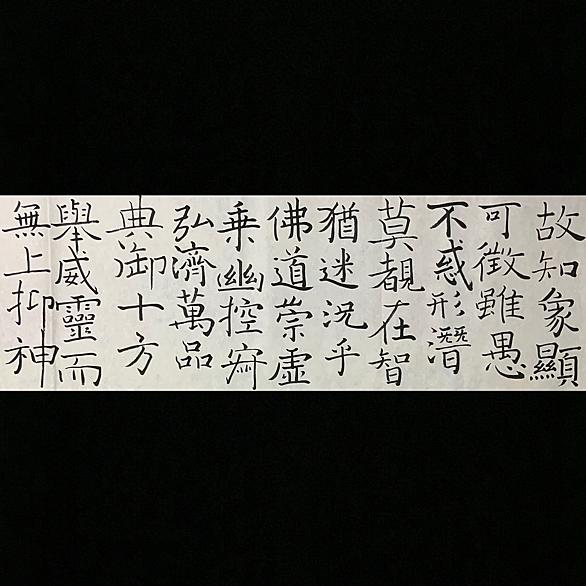 故知象顯
可徵雖愚
不惑形潛
莫覩在智
猶迷況乎
佛道崇虛
乗幽控寂
弘濟萬品
典御十方
舉威靈而
無上抑神